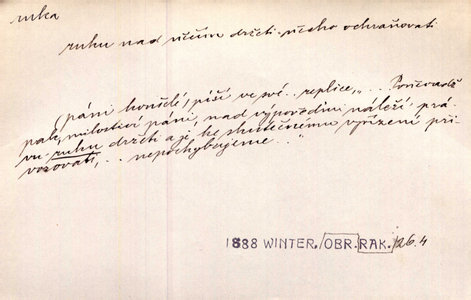 ruka
ruku nad něčím držeti něčeho ochraňovati
(páni konšelé) píší ve své .. replice „ ...
pak, milostiví páni, nad výpovědmi náleží prá-
vu ruku držeti a ji ke skutečnému vyřízení při-
vozovati, .. nepochybujeme .. "
1888 WINTER./OBR.RAK./126.4